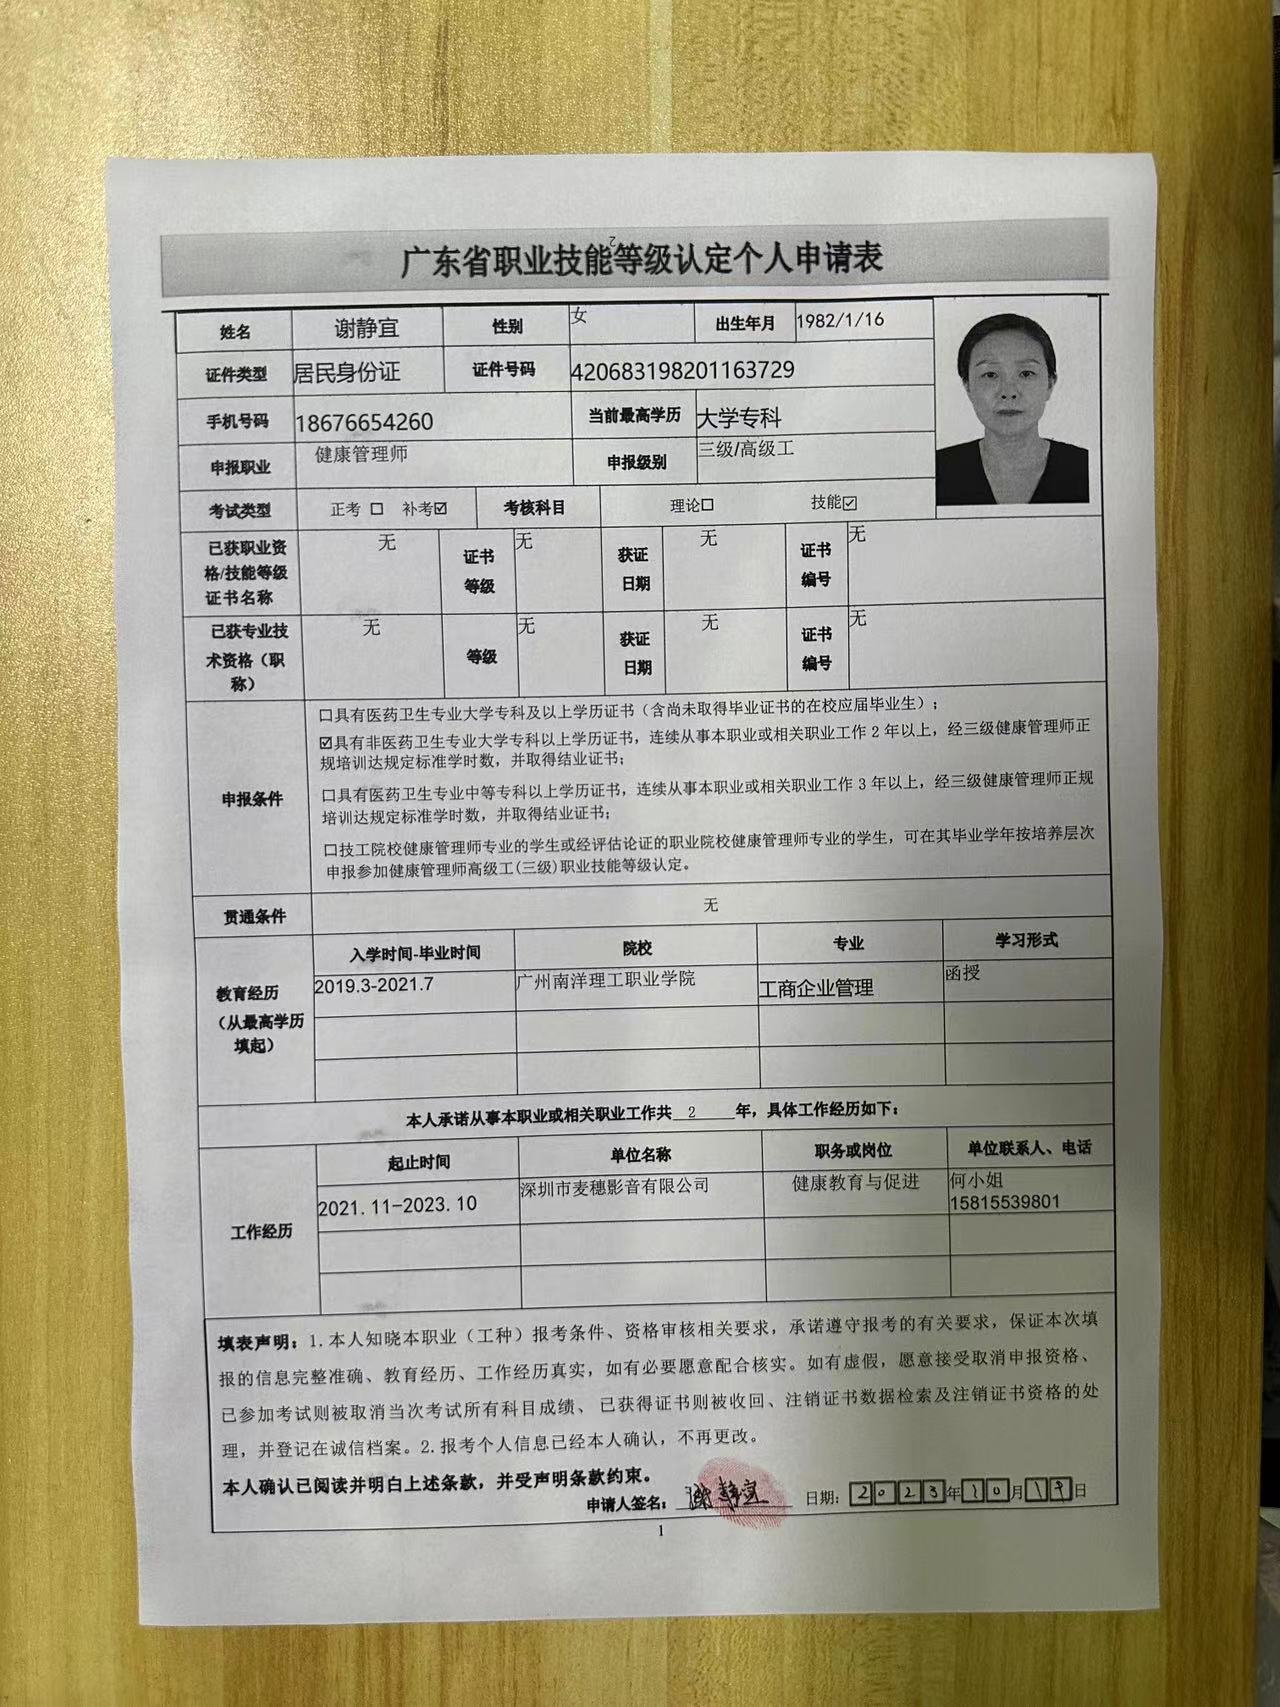 广东省职业技能等级认定个人申请表
姓名 谢静宜 性别 女 出生年月 1982/1/16
证件类型 居民身份证 证件号码 420683198201163729
手机号码 18676654260 当前最高学历 大学专科
申报职业 健康管理师 申报级别 三级/高级工
考试类型 正考 □ 补考☑ 考核科目 理论□ 技能☑
已获职业资格/技能等级证书名称 无 证书等级 无 获证日期 无 证书编号 无
已获专业技术资格（职称） 无 等级 无 获证日期 无 证书编号 无
申报条件
口具有医药卫生专业大学专科及以上学历证书（含尚未取得毕业证书的在校应届毕业生）；
☑具有非医药卫生专业大学专科以上学历证书，连续从事本职业或相关职业工作 2 年以上，经三级健康管理师正
规培训达规定标准学时数，并取得结业证书；
口具有医药卫生专业中等专科以上学历证书，连续从事本职业或相关职业工作 3 年以上，经三级健康管理师正规
培训达规定标准学时数，并取得结业证书；
口技工院校健康管理师专业的学生或经评估论证的职业院校健康管理师专业的学生，可在其毕业学年按培养层次
申报参加健康管理师高级工(三级)职业技能等级认定。
贯通条件 无
教育经历（从最高学历填起）
入学时间-毕业时间 院校 专业 学习形式
2019.3-2021.7 广州南洋理工职业学院 工商企业管理 函授
本人承诺从事本职业或相关职业工作共 2 年，具体工作经历如下：
工作经历
起止时间 单位名称 职务或岗位 单位联系人、电话
2021.11-2023.10 深圳市麦穗影音有限公司 健康教育与促进 何小姐
15815539801
填表声明：1.本人知晓本职业（工种）报考条件、资格审核相关要求，承诺遵守报考的有关要求，保证本次填
报的信息完整准确、教育经历、工作经历真实，如有必要愿意配合核实。如有虚假，愿意接受取消申报资格、
已参加考试则被取消当次考试所有科目成绩、已获得证书则被收回、注销证书数据检索及注销证书资格的处
理，并登记在诚信档案。2.报考个人信息已经本人确认，不再更改。
本人确认已阅读并明白上述条款，并受声明条款约束。
申请人签名： 谢静宜 日期：2023年10月19日
1